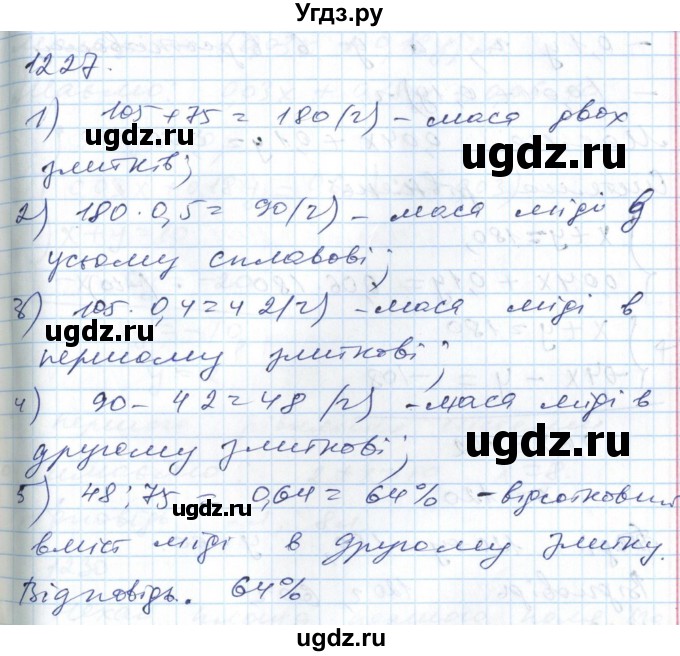 Угдз.ру
1227.
1) 105 + 75 = 180 (г) – маса двох
злитків;
2) 180 · 0,5 = 90 (г) – маса міді в
усьому сплавові;
3) 105 · 0,4 = 42 (г) – маса міді в
першому злиткові;
4) 90 – 42 = 48 (г) – маса міді в
другому злиткові;
5) 48 : 75 = 0,64 = 64% – відсотковий
вміст міді в другому злитку.
Відповідь. 64%
ugdz.ru
ugdz.ru
ugdz.ru
ugdz.ru
ugdz.ru
ugdz.ru
ugdz.ru
ugdz.ru